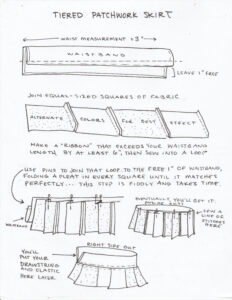 TIERED PATCHWORK SKIRT
WAIST MEASUREMENT +3"
WAISTBAND
LEAVE 1" FREE
JOIN EQUAL-SIZED SQUARES OF FABRIC
ALTERNATE COLORS FOR BEST EFFECT
MAKE A "RIBBON" THAT EXCEEDS YOUR WAISTBAND
LENGTH BY AT LEAST 6", THEN SEW INTO A LOOP
USE PINS TO JOIN THAT LOOP TO THE FREE 1" OF WAISTBAND,
FOLDING A PLEAT IN EVERY SQUARE UNTIL IT MATCHES
PERFECTLY... THIS STEP IS FIDDLY AND TAKES TIME.
EVENTUALLY, YOU'LL GET IT
SEW A
LINE OF
STITCHES
HERE
WAISTBAND
RIGHT SIDE OUT
YOU'LL
PUT YOUR
DRAWSTRING
AND ELASTIC
HERE LATER